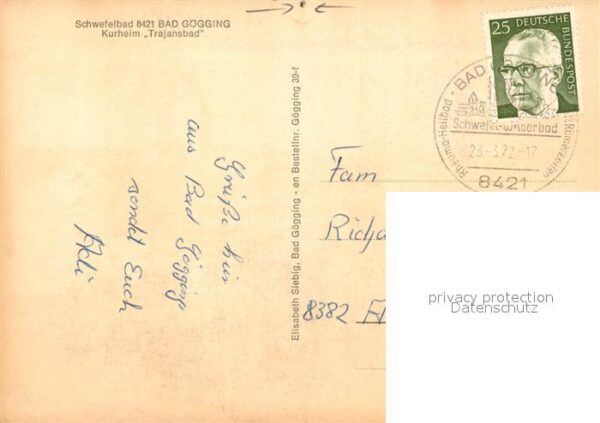 Schwefelbad 8421 BAD GÖGGING
Kurheim „Trajansbad"
Grüße hier
aus Bad Gögging
sendet Euch
Elisabeth Siebig, Bad Gögging - en Bestellnr. Gögging 39-f
25 DEUTSCHE BUNDESPOST
BAD
Rheuma-Heilbad
Schwefel-u. Moorbad
23-3.72-17
8421
Fam
Richa
8382
privacy protection
Datenschutz